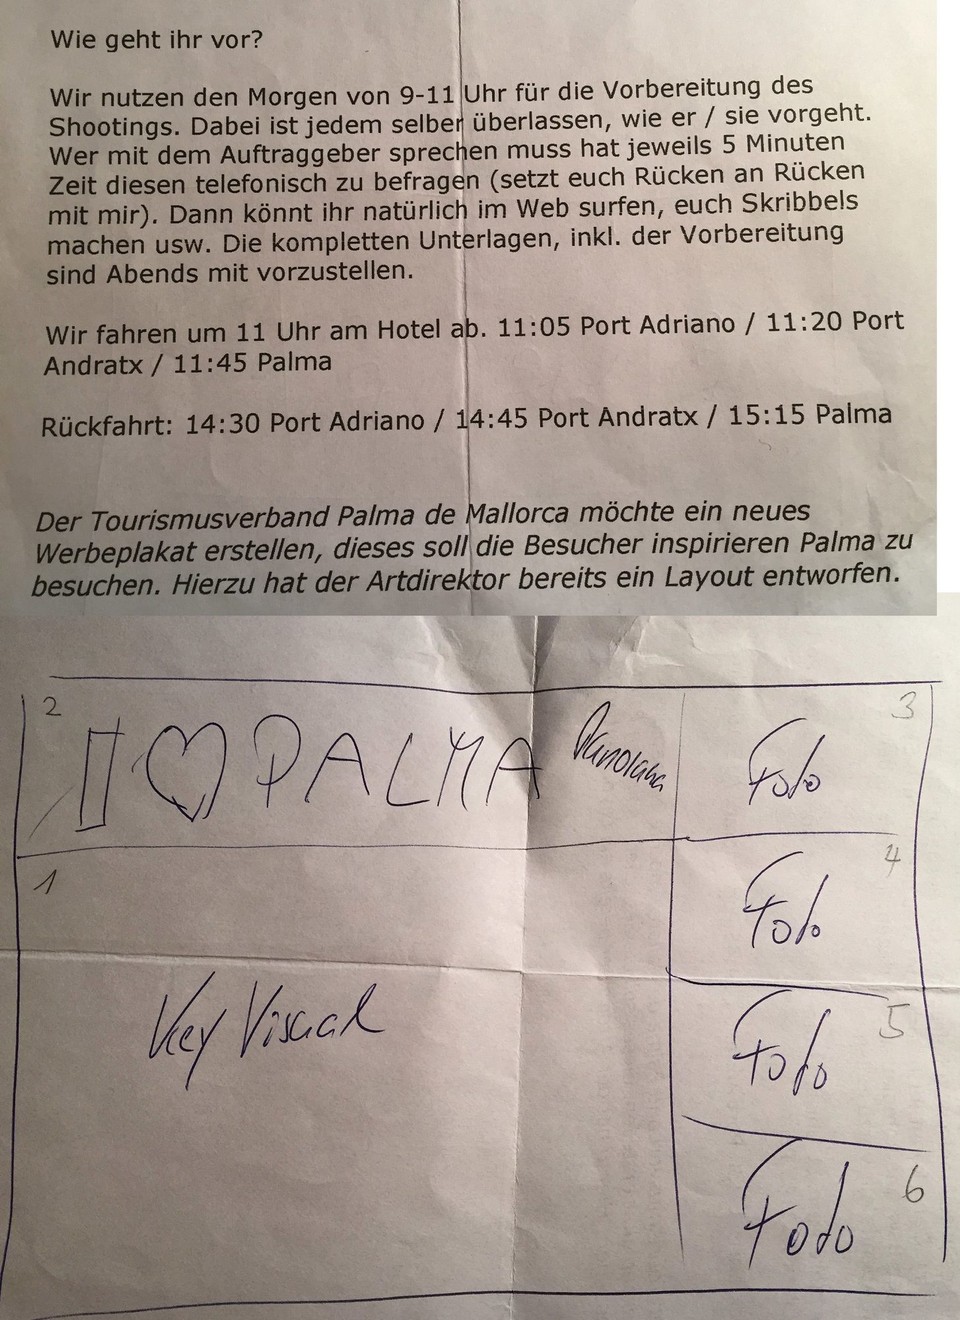 Wie geht ihr vor?
Wir nutzen den Morgen von 9-11 Uhr für die Vorbereitung des
Shootings. Dabei ist jedem selber überlassen, wie er / sie vorgeht.
Wer mit dem Auftraggeber sprechen muss hat jeweils 5 Minuten
Zeit diesen telefonisch zu befragen (setzt euch Rücken an Rücken
mit mir). Dann könnt ihr natürlich im Web surfen, euch Skribbels
machen usw. Die kompletten Unterlagen, inkl. der Vorbereitung
sind Abends mit vorzustellen.
Wir fahren um 11 Uhr am Hotel ab. 11:05 Port Adriano / 11:20 Port
Andratx / 11:45 Palma
Rückfahrt: 14:30 Port Adriano / 14:45 Port Andratx / 15:15 Palma
Der Tourismusverband Palma de Mallorca möchte ein neues
Werbeplakat erstellen, dieses soll die Besucher inspirieren Palma zu
besuchen. Hierzu hat der Artdirektor bereits ein Layout entworfen.
2
I ♡ PALMA Panorama
3
Foto
1
Key Visual
4
Foto
5
Foto
6
Foto